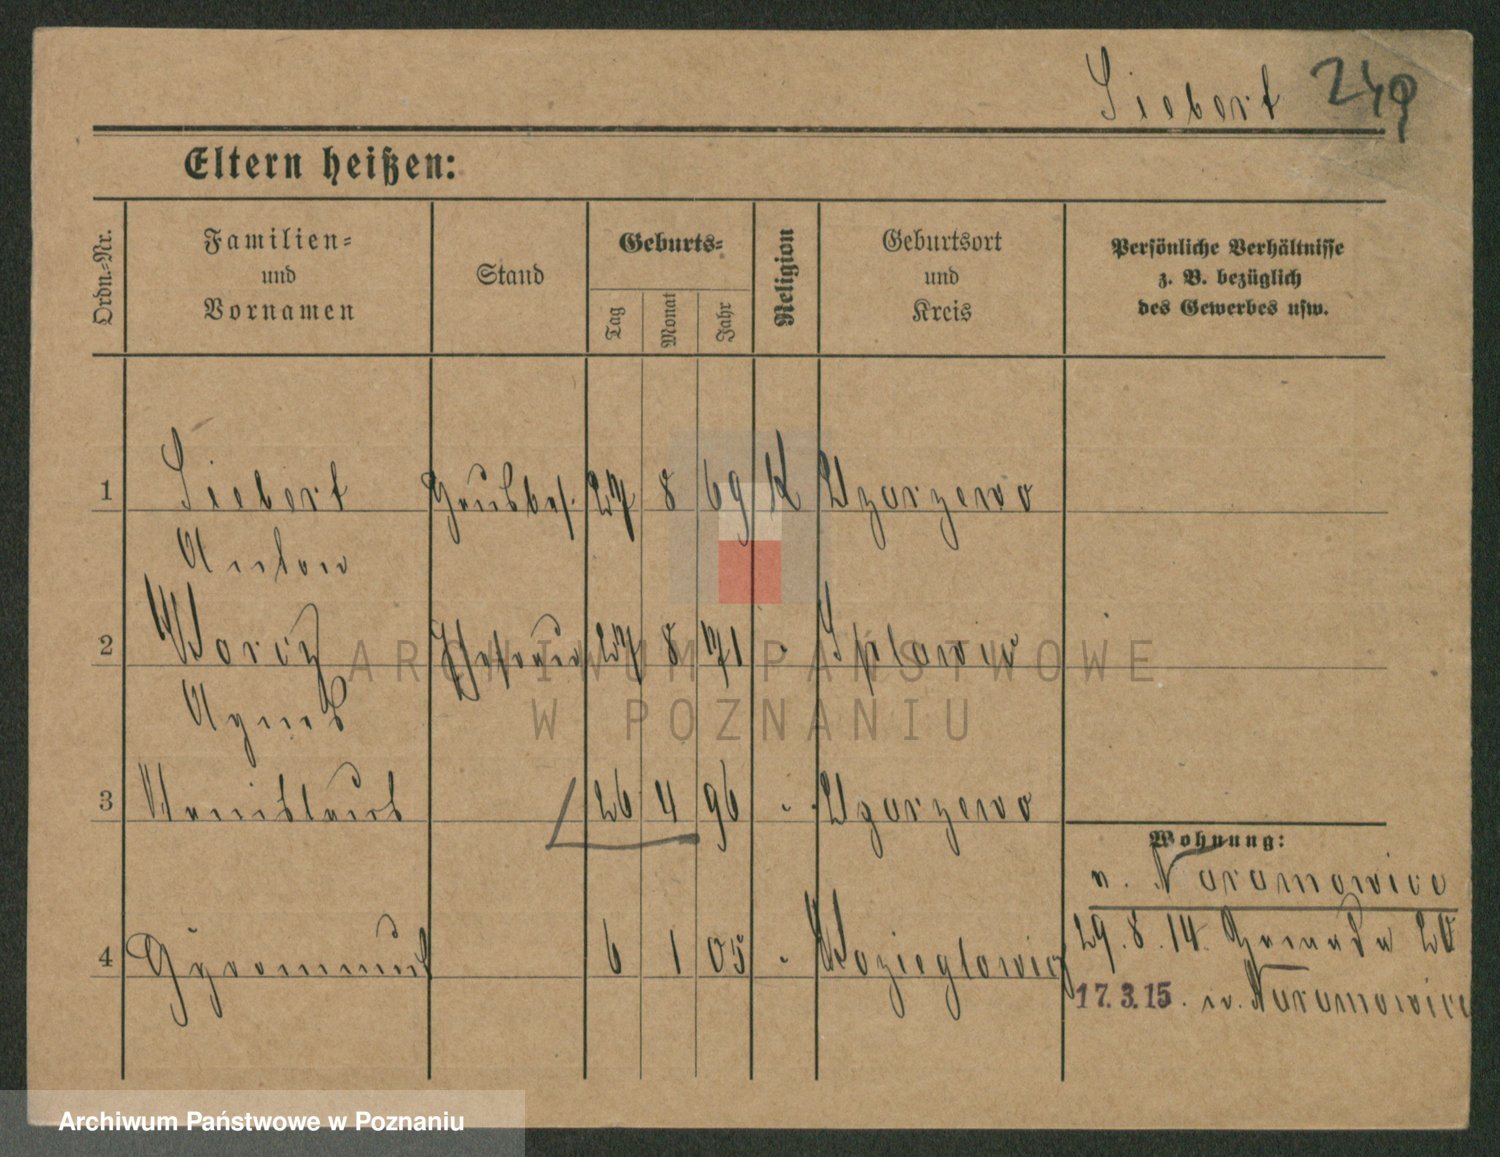 Siebert 249
Eltern heißen:
Ordn.-Nr.
Familien-
und
Vornamen
Stand
Geburts-
Tag
Monat
Jahr
Religion
Geburtsort
und
Kreis
Persönliche Verhältnisse
z. B. bezüglich
des Gewerbes usw.
1 Siebert 27 8 69 K
Anton
2 Worcz Ehefrau 27 8 71 "
Agnes
3 26 4 96 "
4 6 1 05 " Kozieglowicz
Wohnung:
n. Naramowice
29.8.14.
17.3.15. n. Naramowice
ARCHIWUM PAŃSTWOWE
W POZNANIU
Archiwum Państwowe w Poznaniu